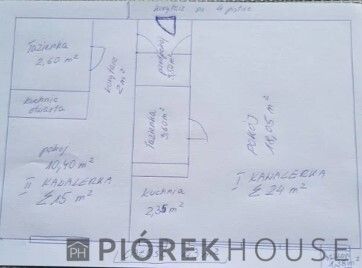 korytarz na 4 piętrze
Łazienka
2,60 m²
kuchnia
otwarta
korytarz
2 m²
pokój
10,40 m²
II KAWALERKA
Σ 15 m²
Łazienka
3,60 m²
kuchnia
2,35 m²
POKÓJ
18,05 m²
I KAWALERKA
Σ 24 m²
PH PIÓREKHOUSE